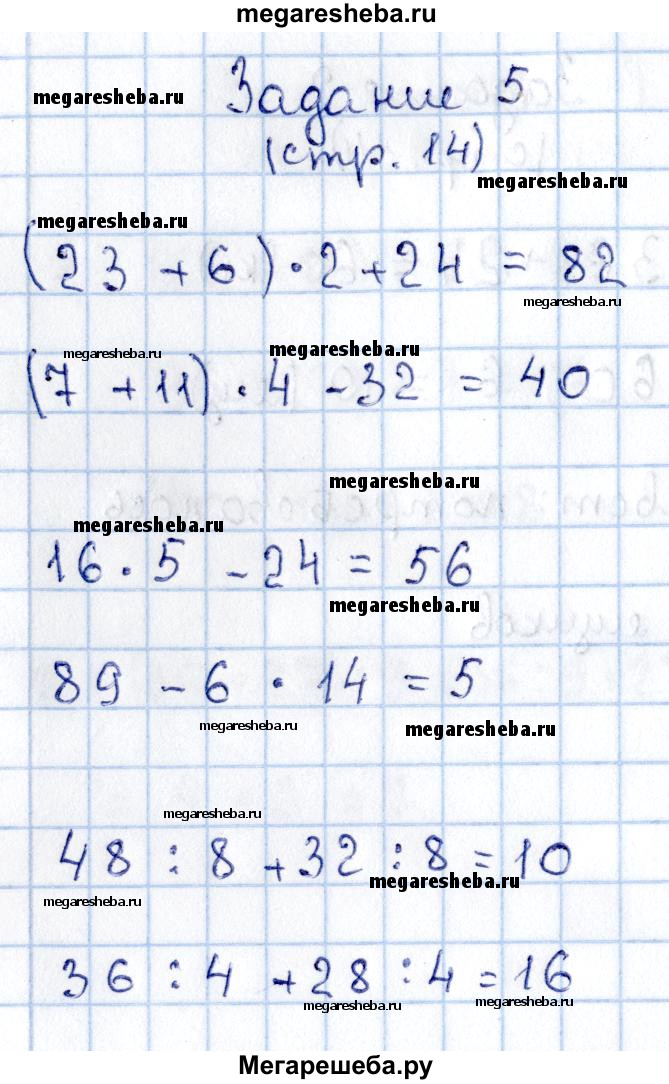 megaresheba.ru
Задание 5
megaresheba.ru
(стр. 14)
megaresheba.ru
megaresheba.ru
(23 + 6) · 2 + 24 = 82
megaresheba.ru
megaresheba.ru
megaresheba.ru
(7 + 11) · 4 - 32 = 40
megaresheba.ru
megaresheba.ru
16 · 5 - 24 = 56
megaresheba.ru
89 - 6 · 14 = 5
megaresheba.ru
megaresheba.ru
megaresheba.ru
48 : 8 + 32 : 8 = 10
megaresheba.ru
megaresheba.ru
36 : 4 + 28 : 4 = 16
megaresheba.ru
megaresheba.ru
Мегарешеба.ру